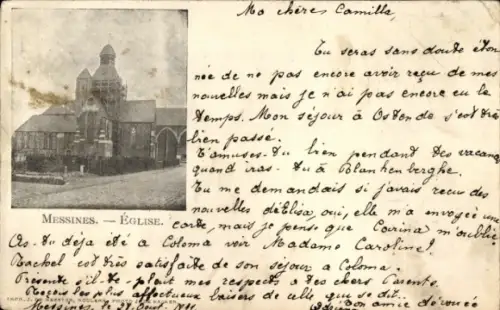 Ma chère Camilla,
Tu seras sans doute éton
née de ne pas encore avoir reçu de mes
nouvelles mais je n'ai pas encore eu le
temps. Mon séjour à Ostende s'est très
bien passé.
T'amuses-tu bien pendant tes vacanc
quand iras-tu à Blankenberghe.
Tu me demandais si j'avais reçu des
nouvelles d'Elisa, oui, elle m'a envoyée une
carte, mais je pense que Corina m'oublie
MESSINES. — ÉGLISE.
As-tu déja été à Coloma voir Madame Caroline!
Rachel est très satisfaite de son séjour à Coloma.
Présente s'il-te-plait mes respects à tes chers Parents.
Reçois les plus affectueux baisers de celle que se dit
Messines, le 27 Ton amie dévouée